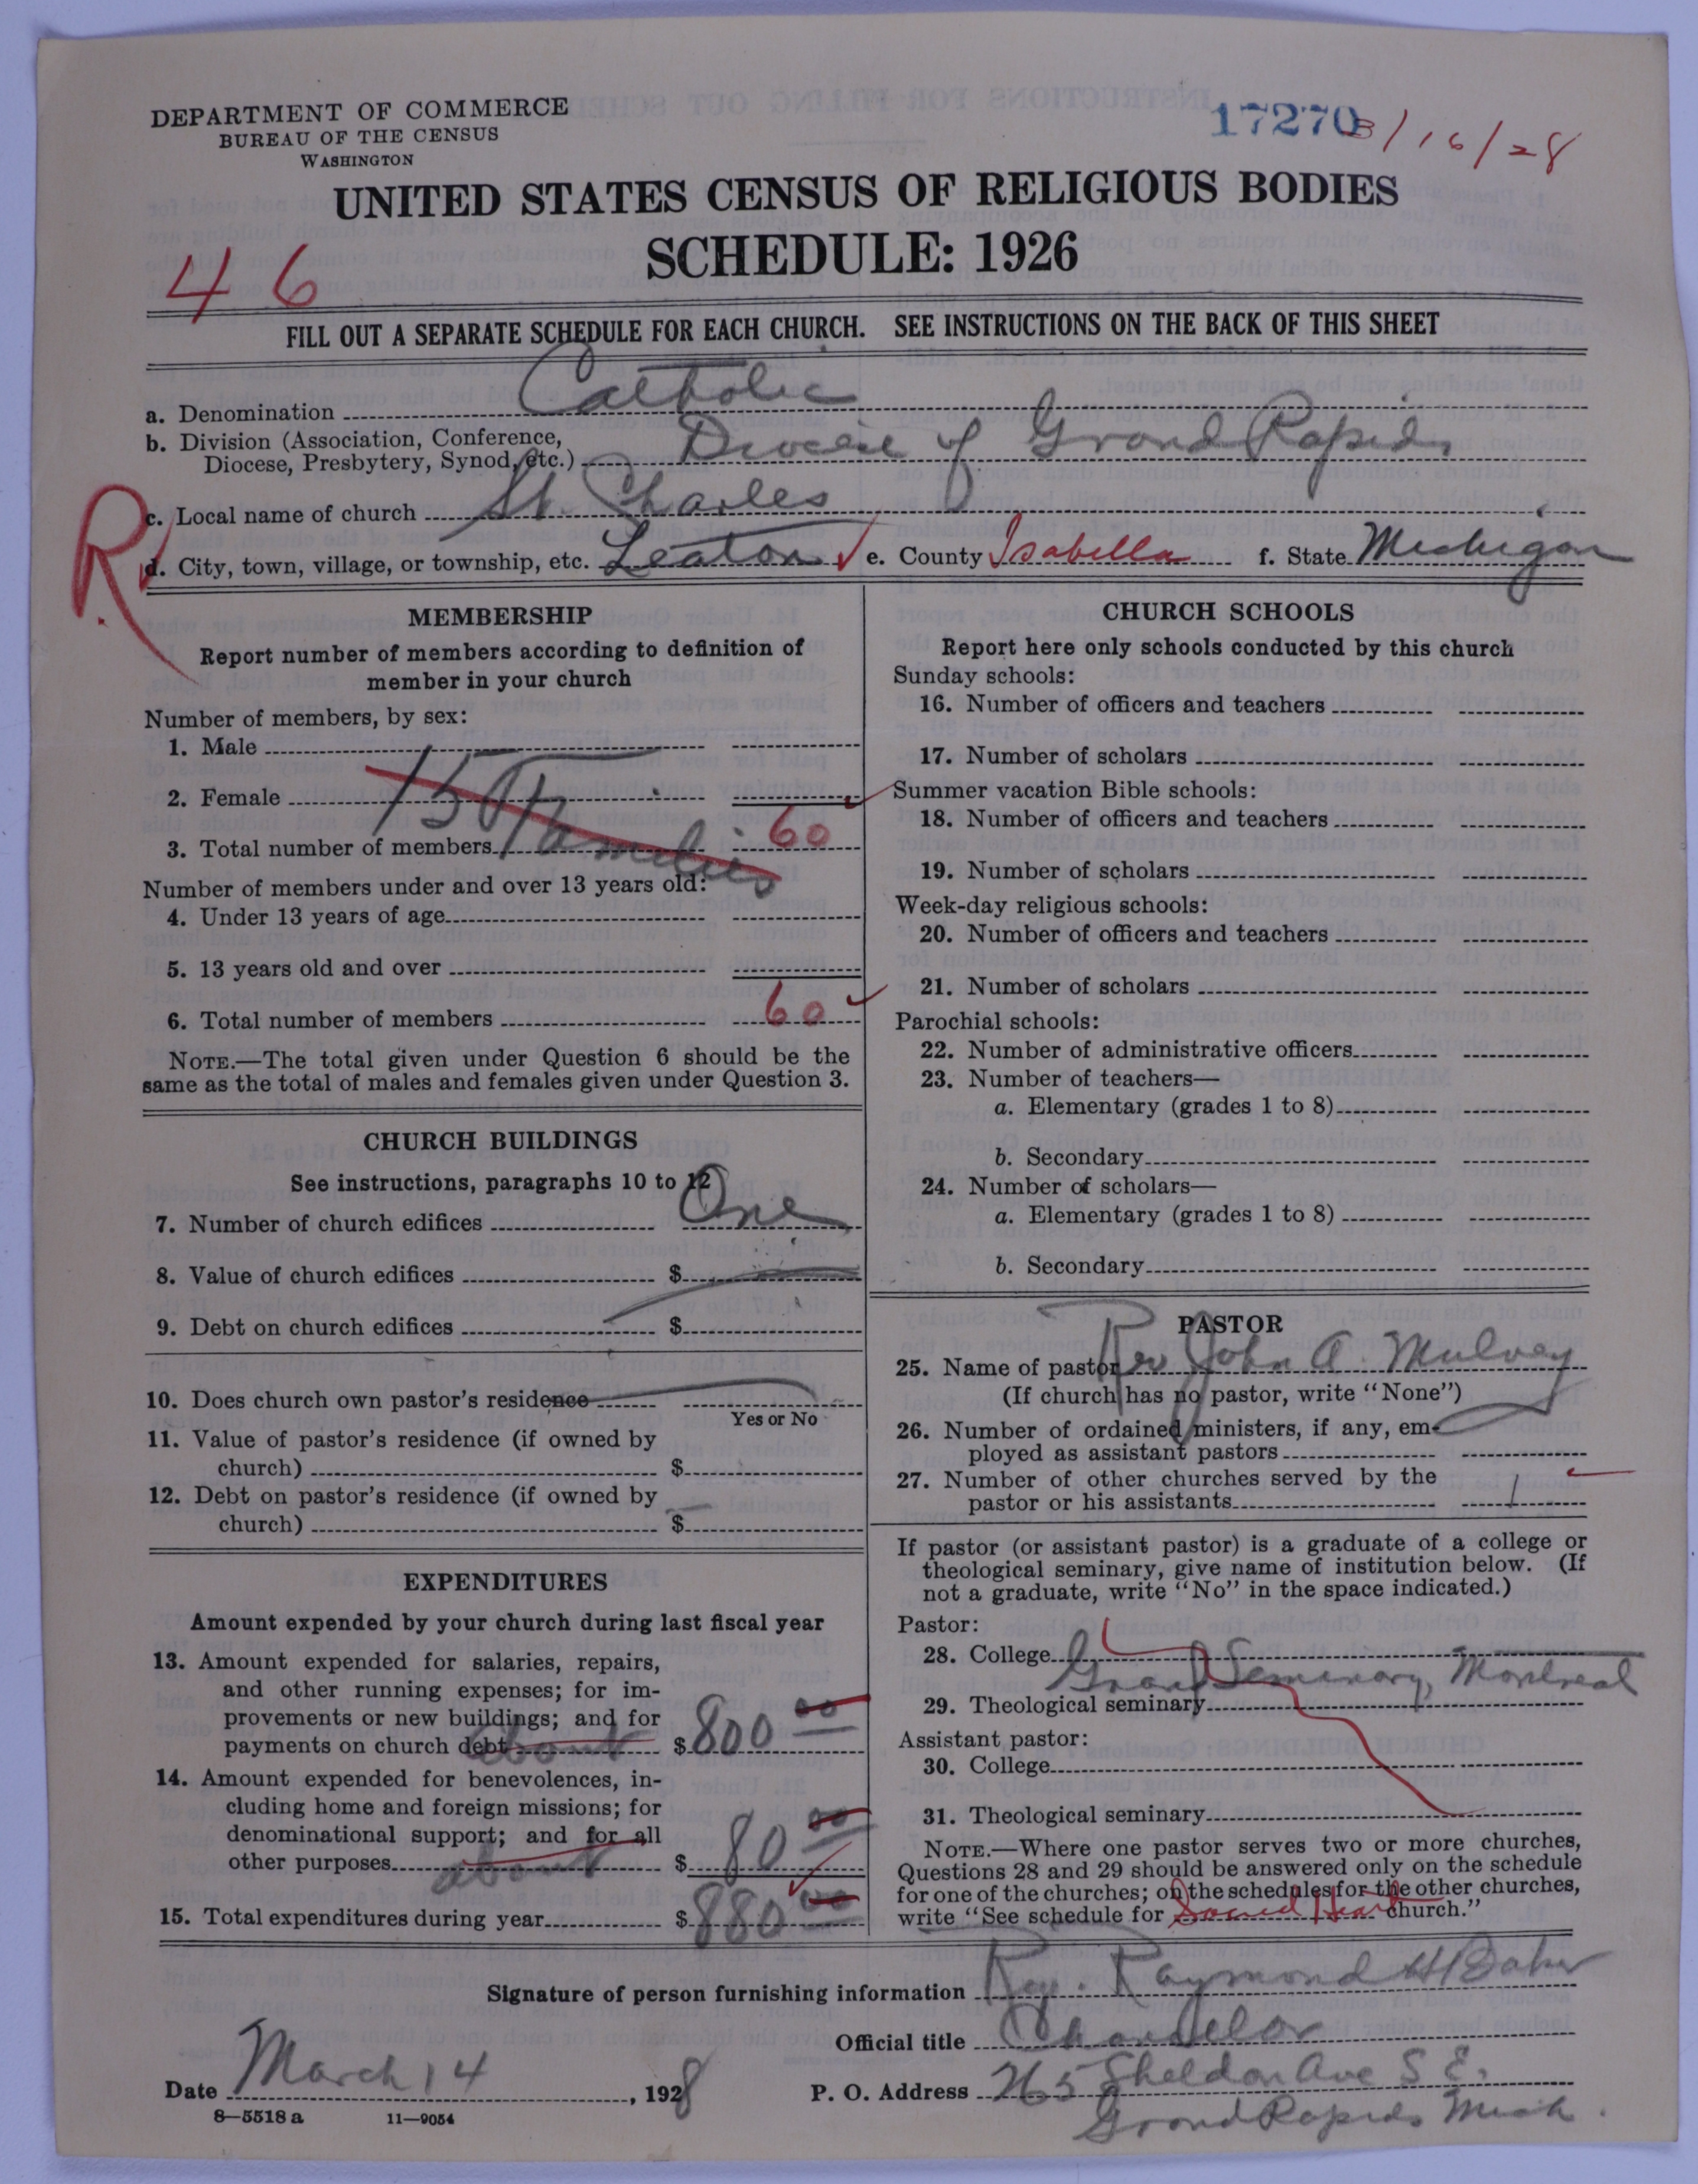 DEPARTMENT OF COMMERCE
BUREAU OF THE CENSUS
WASHINGTON
17270
3/16/28
UNITED STATES CENSUS OF RELIGIOUS BODIES
SCHEDULE: 1926
46
FILL OUT A SEPARATE SCHEDULE FOR EACH CHURCH. SEE INSTRUCTIONS ON THE BACK OF THIS SHEET
a. Denomination Catholic
b. Division (Association, Conference,
Diocese, Presbytery, Synod, etc.) Diocese of Grand Rapids
R
c. Local name of church St. Charles
d. City, town, village, or township, etc. Leaton e. County Isabella f. State Michigan
MEMBERSHIP
Report number of members according to definition of
member in your church
Number of members, by sex:
1. Male
2. Female
150 Families
3. Total number of members 60
Number of members under and over 13 years old:
4. Under 13 years of age
5. 13 years old and over
6. Total number of members 60
NOTE.—The total given under Question 6 should be the
same as the total of males and females given under Question 3.
CHURCH BUILDINGS
See instructions, paragraphs 10 to 12
7. Number of church edifices One
8. Value of church edifices $
9. Debt on church edifices $
10. Does church own pastor's residence
Yes or No
11. Value of pastor's residence (if owned by
church) $
12. Debt on pastor's residence (if owned by
church) $
EXPENDITURES
Amount expended by your church during last fiscal year
13. Amount expended for salaries, repairs,
and other running expenses; for im-
provements or new buildings; and for
payments on church debt about $ 800 00
14. Amount expended for benevolences, in-
cluding home and foreign missions; for
denominational support; and for all
other purposes about $ 80 00
15. Total expenditures during year $ 880 00
CHURCH SCHOOLS
Report here only schools conducted by this church
Sunday schools:
16. Number of officers and teachers
17. Number of scholars
Summer vacation Bible schools:
18. Number of officers and teachers
19. Number of scholars
Week-day religious schools:
20. Number of officers and teachers
21. Number of scholars
Parochial schools:
22. Number of administrative officers
23. Number of teachers—
a. Elementary (grades 1 to 8)
b. Secondary
24. Number of scholars—
a. Elementary (grades 1 to 8)
b. Secondary
PASTOR
25. Name of pastor Rev John A. Mulvey
(If church has no pastor, write "None")
26. Number of ordained ministers, if any, em-
ployed as assistant pastors
27. Number of other churches served by the
pastor or his assistants 1
If pastor (or assistant pastor) is a graduate of a college or
theological seminary, give name of institution below. (If
not a graduate, write "No" in the space indicated.)
Pastor:
28. College
Grand Seminary, Montreal
29. Theological seminary
Assistant pastor:
30. College
31. Theological seminary
NOTE.—Where one pastor serves two or more churches,
Questions 28 and 29 should be answered only on the schedule
for one of the churches; on the schedules for the other churches,
write "See schedule for Sacred Heart church."
Signature of person furnishing information Rev. Raymond H Baker
Official title Chancelor
Date March 14, 1928
P. O. Address 265 Sheldon Ave S E.
Grand Rapids Mich.
8—5518 a 11—9054